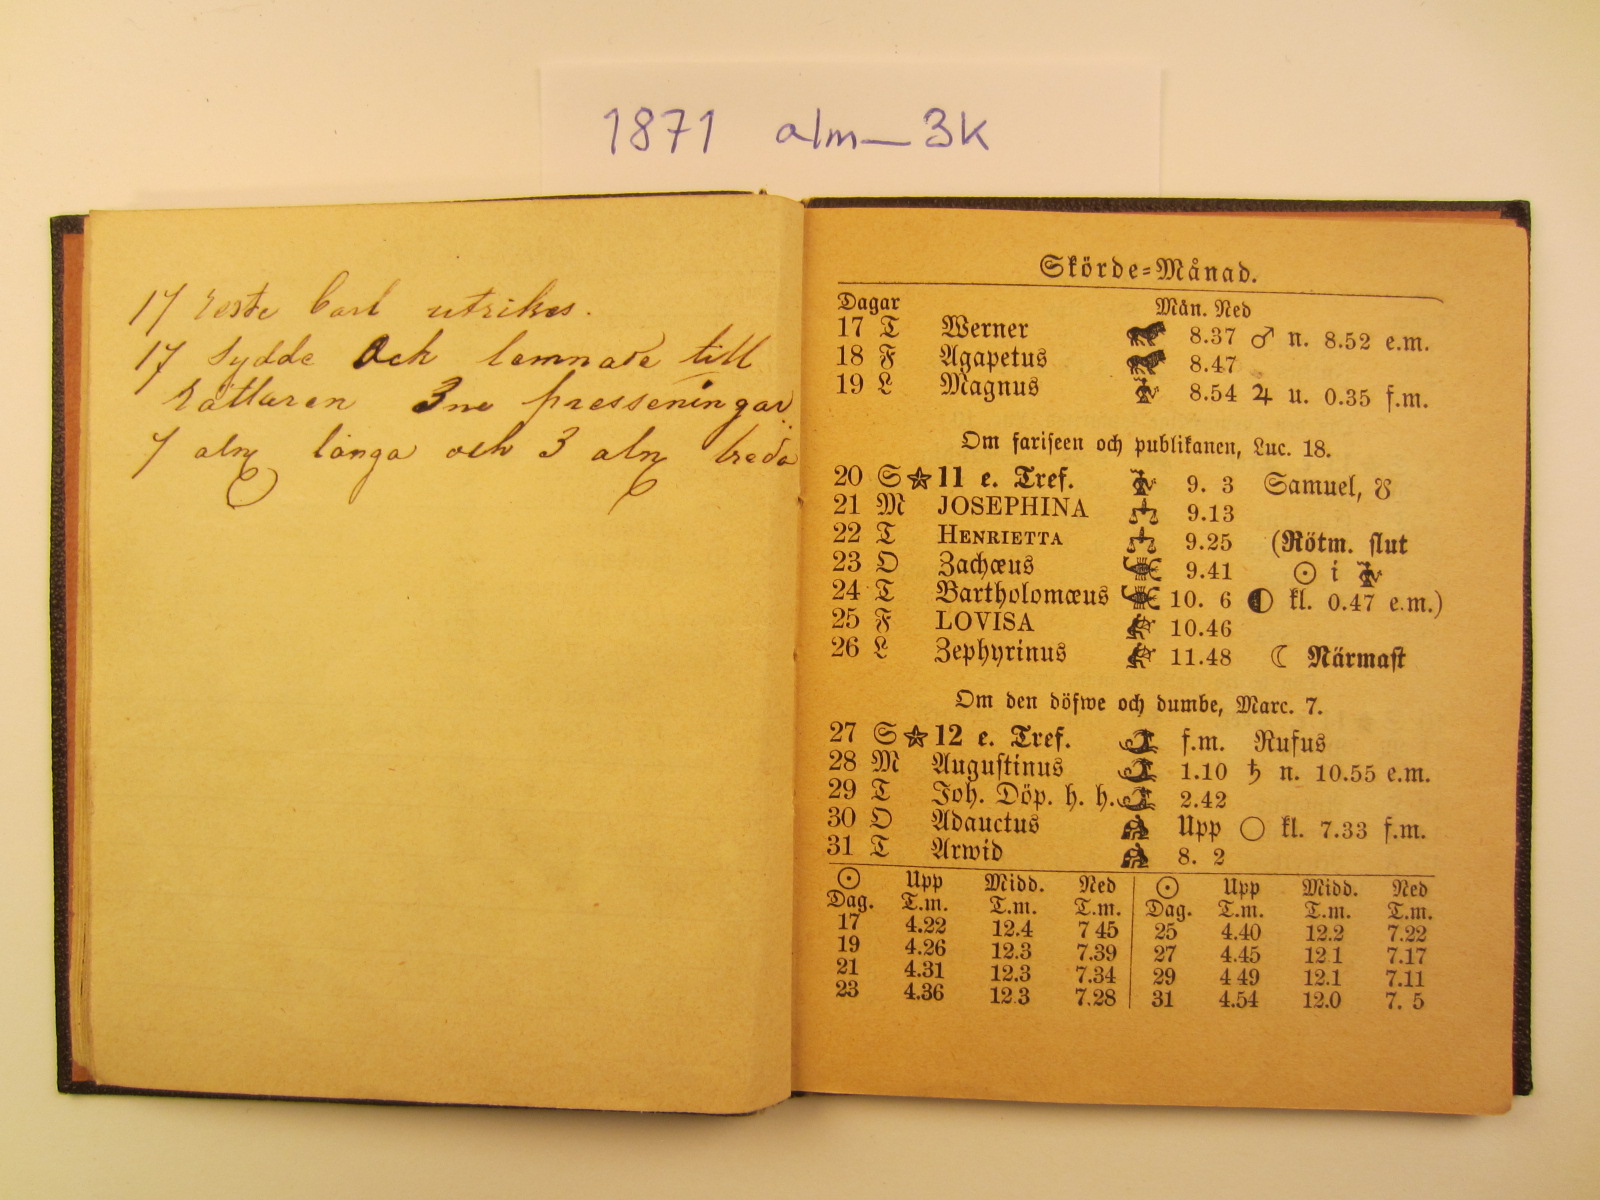 1871 alm_3k
17 reste Carl utrikes.
17 sydde Och lemnade till
Rättaren 3ne presseningar
7 aln långa och 3 aln breda
Skörde=Månad.
Dagar Mån. Ned
17 T Werner 8.37 ♂ n. 8.52 e.m.
18 F Agapetus 8.47
19 L Magnus 8.54 ♃ u. 0.35 f.m.
Om fariseen och publikanen, Luc. 18.
20 S ☆ 11 e. Tref. 9. 3 Samuel, ☋
21 M JOSEPHINA 9.13
22 T HENRIETTA 9.25 (Rötm. slut
23 O Zachæus 9.41 ☉ i ♍
24 T Bartholomæus 10. 6 ◐ kl. 0.47 e.m.)
25 F LOVISA 10.46
26 L Zephyrinus 11.48 ☾ Närmast
Om den döfwe och dumbe, Marc. 7.
27 S ☆ 12 e. Tref. f.m. Rufus
28 M Augustinus 1.10 ♄ n. 10.55 e.m.
29 T Joh. Döp. h. h. 2.42
30 O Adauctus Upp ○ kl. 7.33 f.m.
31 T Arwid 8. 2
☉ Upp Midd. Ned ☉ Upp Midd. Ned
Dag. T.m. T.m. T.m. Dag. T.m. T.m. T.m.
17 4.22 12.4 7 45 25 4.40 12.2 7.22
19 4.26 12.3 7.39 27 4.45 12 1 7.17
21 4.31 12.3 7.34 29 4 49 12.1 7.11
23 4.36 12 3 7.28 31 4.54 12.0 7. 5